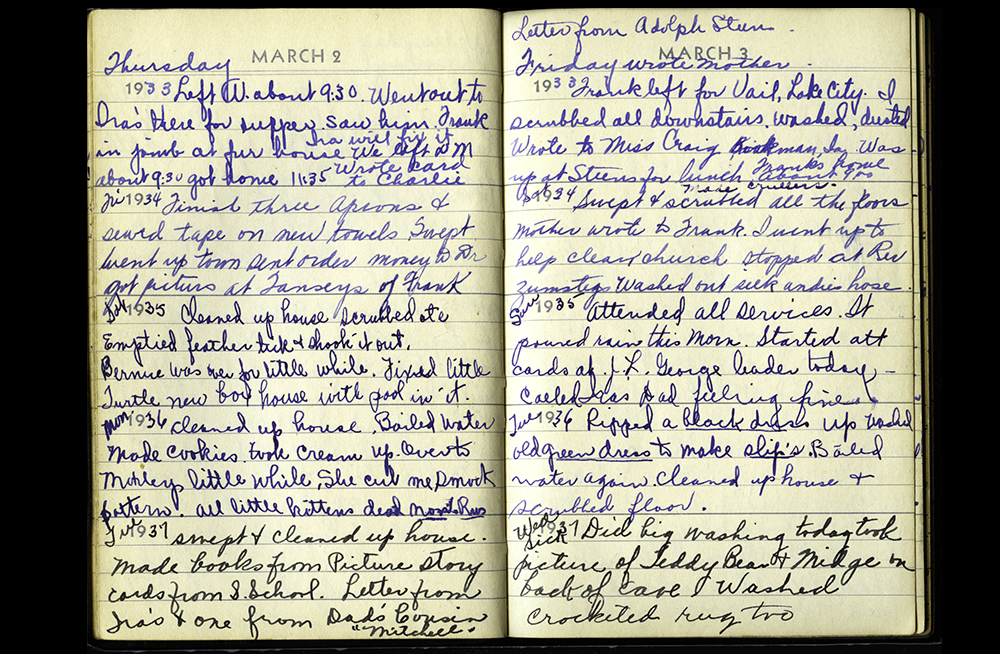 MARCH 2
Thursday
1933 Left W. about 9:30. Went out to
Ira's there for supper. Saw him. Frank
in jamb at fur house Ira will fix it
We left DM
about 9:30 got home 11:35 Wrote card
to Charlie
Fri 1934 Finish three aprons &
sewed tape on new towels. Swept
went up town sent order money to Dr
got picturs at Tanseys of Frank
Sat 1935 Cleaned up house scrubbed etc
Emptied feather tick & shook it out.
Bernice was over for little while. Fixed little
Turtle new box house with pool in it.
Mon 1936 Cleaned up house. Boiled water
Made cookies. took cream up. Over to
little while, She cut me Smock
pattern. all little kittens dead
Tue 1937 swept & cleaned up house.
Made books from Picture story
cards from S. School. Letter from
Ira's & one from Dad's Cousin
"Mitchell."
Letter from Adolph Steens.
MARCH 3
Friday wrote mother.
1933 Frank left for Vail, Lake City. I
scrubbed all downstairs, washed, dusted
Wrote to Miss Craig Ia. Was
up at Steens for lunch Frank's home
about 900
Sat 1934 Made crullers.
Swept & scrubbed all the floors
Mother wrote to Frank. I went up to
help clean church stopped at Rev
Zumstegs Washed out silk undies hose.
Sun 1935 Attended all services. It
poured rain this Morn. Started att
cards af. J.L. George leader today –
Called Iras Dad feeling fine.
Tue 1936 Ripped a black dress up washed
old green dress to make slip's. Boiled
water again. Cleaned up house &
scrubbed floor.
Wed
sick 1937 Did big washing today took
picture of Teddy Bear & Midge on
back of cave. Washed
crocheted rug too